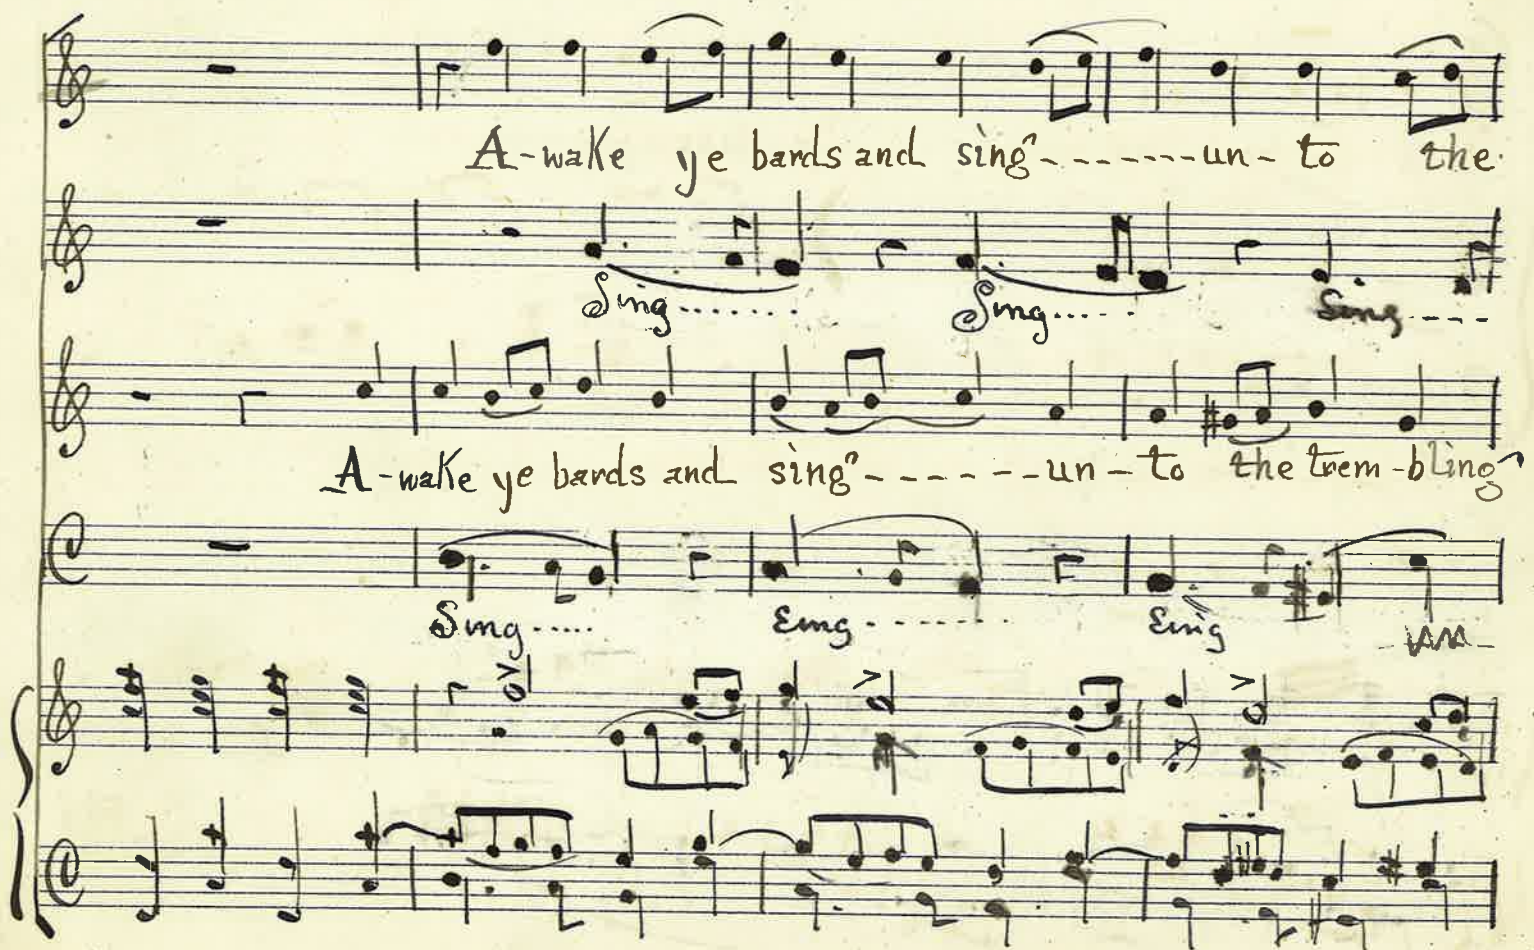 A-wake ye bards and sing-------un-to the
Sing....... Sing..... Sing----
A-wake ye bards and sing-------un-to the trem-bling
Sing..... Sing....... Sing